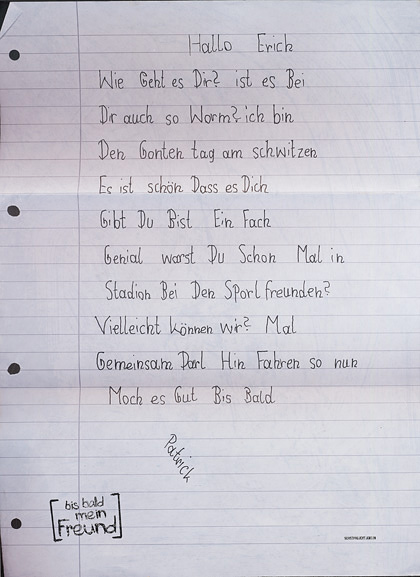 Hallo Erich
Wie Geht es Dir? ist es Bei
Dir auch so Worm? ich bin
Den Gonten tag am schwitzen
Es ist schön Dass es Dich
Gibt Du Bist Ein Fach
Genial warst Du Schon Mal in
Stadion Bei Den Sport freunden?
Vielleicht können wir? Mal
Gemeinsam Dort Hin Fahren so nun
Moch es Gut Bis Bald
Patrick
bis bald
mein
Freund